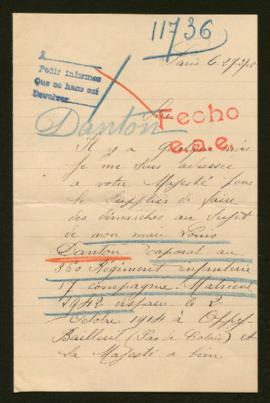 11736
Paris le 27
Pedir informes
Que se haga así
Devolver
Sire
Danton
echo
e.o.e.
Il y a quelques mois
je me suis adressée
a votre Majesté pour
le supplier de faire
des démarches au sujet
de mon mari Louis
Danton caporal au
360 Régiment enfanterie
17 compagnie Matricul
disparu le 2
Octobre 1914 à
Bailleul (Pas de Calais) et
Sa Majesté a bien